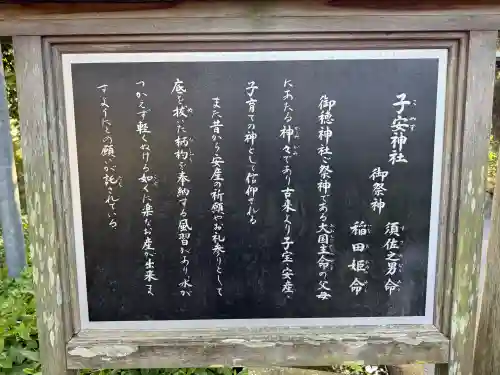 子安神社
御祭神
須佐之男命
稲田姫命
御穂神社ご祭神である大国主命の父母
にあたる神々であり古来より子宝・安産・
子育ての神として信仰される
また昔から安産の祈願やお礼参りとして
底を抜いた柄杓を奉納する風習があり水が
つかえず軽くぬける如くに楽なお産が出来ま
すようにとの願いが託されている